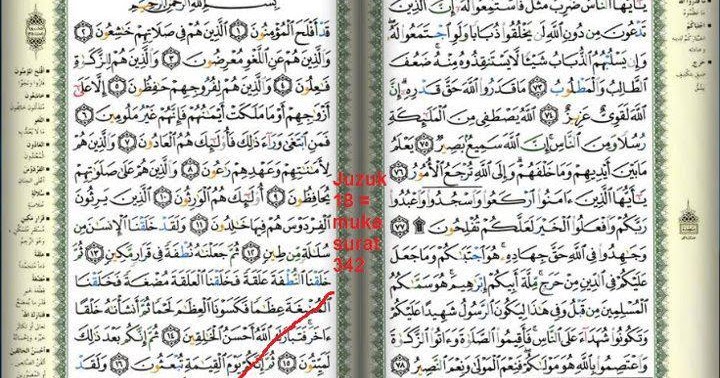 يَٰٓأَيُّهَا ٱلنَّاسُ ضُرِبَ مَثَلٌ فَٱسْتَمِعُوا۟ لَهُۥٓ إِنَّ ٱلَّذِينَ
تَدْعُونَ مِن دُونِ ٱللَّهِ لَن يَخْلُقُوا۟ ذُبَابًا وَلَوِ ٱجْتَمَعُوا۟ لَهُۥ
وَإِن يَسْلُبْهُمُ ٱلذُّبَابُ شَيْـًٔا لَّا يَسْتَنقِذُوهُ مِنْهُ ضَعُفَ
ٱلطَّالِبُ وَٱلْمَطْلُوبُ ٧٣ مَا قَدَرُوا۟ ٱللَّهَ حَقَّ قَدْرِهِۦٓ إِنَّ
ٱللَّهَ لَقَوِىٌّ عَزِيزٌ ٧٤ ٱللَّهُ يَصْطَفِى مِنَ ٱلْمَلَٰٓئِكَةِ
رُسُلًا وَمِنَ ٱلنَّاسِ إِنَّ ٱللَّهَ سَمِيعٌۢ بَصِيرٌ ٧٥ يَعْلَمُ
مَا بَيْنَ أَيْدِيهِمْ وَمَا خَلْفَهُمْ وَإِلَى ٱللَّهِ تُرْجَعُ ٱلْأُمُورُ ٧٦
يَٰٓأَيُّهَا ٱلَّذِينَ ءَامَنُوا۟ ٱرْكَعُوا۟ وَٱسْجُدُوا۟ وَٱعْبُدُوا۟
رَبَّكُمْ وَٱفْعَلُوا۟ ٱلْخَيْرَ لَعَلَّكُمْ تُفْلِحُونَ ۩ ٧٧
وَجَٰهِدُوا۟ فِى ٱللَّهِ حَقَّ جِهَادِهِۦ هُوَ ٱجْتَبَىٰكُمْ وَمَا جَعَلَ
عَلَيْكُمْ فِى ٱلدِّينِ مِنْ حَرَجٍ مِّلَّةَ أَبِيكُمْ إِبْرَٰهِيمَ هُوَ سَمَّىٰكُمُ
ٱلْمُسْلِمِينَ مِن قَبْلُ وَفِى هَٰذَا لِيَكُونَ ٱلرَّسُولُ شَهِيدًا عَلَيْكُمْ
وَتَكُونُوا۟ شُهَدَآءَ عَلَى ٱلنَّاسِ فَأَقِيمُوا۟ ٱلصَّلَوٰةَ وَءَاتُوا۟ ٱلزَّكَوٰةَ
وَٱعْتَصِمُوا۟ بِٱللَّهِ هُوَ مَوْلَىٰكُمْ فَنِعْمَ ٱلْمَوْلَىٰ وَنِعْمَ ٱلنَّصِيرُ ٧٨
Juzuk
18 =
muka
surat
342
بِسْمِ ٱللَّهِ ٱلرَّحْمَٰنِ ٱلرَّحِيمِ
قَدْ أَفْلَحَ ٱلْمُؤْمِنُونَ ١ ٱلَّذِينَ هُمْ فِى صَلَاتِهِمْ خَٰشِعُونَ ٢
وَٱلَّذِينَ هُمْ عَنِ ٱللَّغْوِ مُعْرِضُونَ ٣ وَٱلَّذِينَ هُمْ لِلزَّكَوٰةِ
فَٰعِلُونَ ٤ وَٱلَّذِينَ هُمْ لِفُرُوجِهِمْ حَٰفِظُونَ ٥ إِلَّا عَلَىٰٓ
أَزْوَٰجِهِمْ أَوْ مَا مَلَكَتْ أَيْمَٰنُهُمْ فَإِنَّهُمْ غَيْرُ مَلُومِينَ ٦
فَمَنِ ٱبْتَغَىٰ وَرَآءَ ذَٰلِكَ فَأُو۟لَٰٓئِكَ هُمُ ٱلْعَادُونَ ٧ وَٱلَّذِينَ هُمْ
لِأَمَٰنَٰتِهِمْ وَعَهْدِهِمْ رَٰعُونَ ٨ وَٱلَّذِينَ هُمْ عَلَىٰ صَلَوَٰتِهِمْ
يُحَافِظُونَ ٩ أُو۟لَٰٓئِكَ هُمُ ٱلْوَٰرِثُونَ ١٠ ٱلَّذِينَ يَرِثُونَ
ٱلْفِرْدَوْسَ هُمْ فِيهَا خَٰلِدُونَ ١١ وَلَقَدْ خَلَقْنَا ٱلْإِنسَٰنَ مِن
سُلَٰلَةٍ مِّن طِينٍ ١٢ ثُمَّ جَعَلْنَٰهُ نُطْفَةً فِى قَرَارٍ مَّكِينٍ ١٣
ثُمَّ خَلَقْنَا ٱلنُّطْفَةَ عَلَقَةً فَخَلَقْنَا ٱلْعَلَقَةَ مُضْغَةً فَخَلَقْنَا
ٱلْمُضْغَةَ عِظَٰمًا فَكَسَوْنَا ٱلْعِظَٰمَ لَحْمًا ثُمَّ أَنشَأْنَٰهُ خَلْقًا
ءَاخَرَ فَتَبَارَكَ ٱللَّهُ أَحْسَنُ ٱلْخَٰلِقِينَ ١٤ ثُمَّ إِنَّكُم بَعْدَ ذَٰلِكَ
لَمَيِّتُونَ ١٥ ثُمَّ إِنَّكُمْ يَوْمَ ٱلْقِيَٰمَةِ تُبْعَثُونَ ١٦ وَلَقَدْ
أفلح المؤمنون
العادون
الفردوس
قرار مكين
علقة
مضغة
أحسن الخالقين